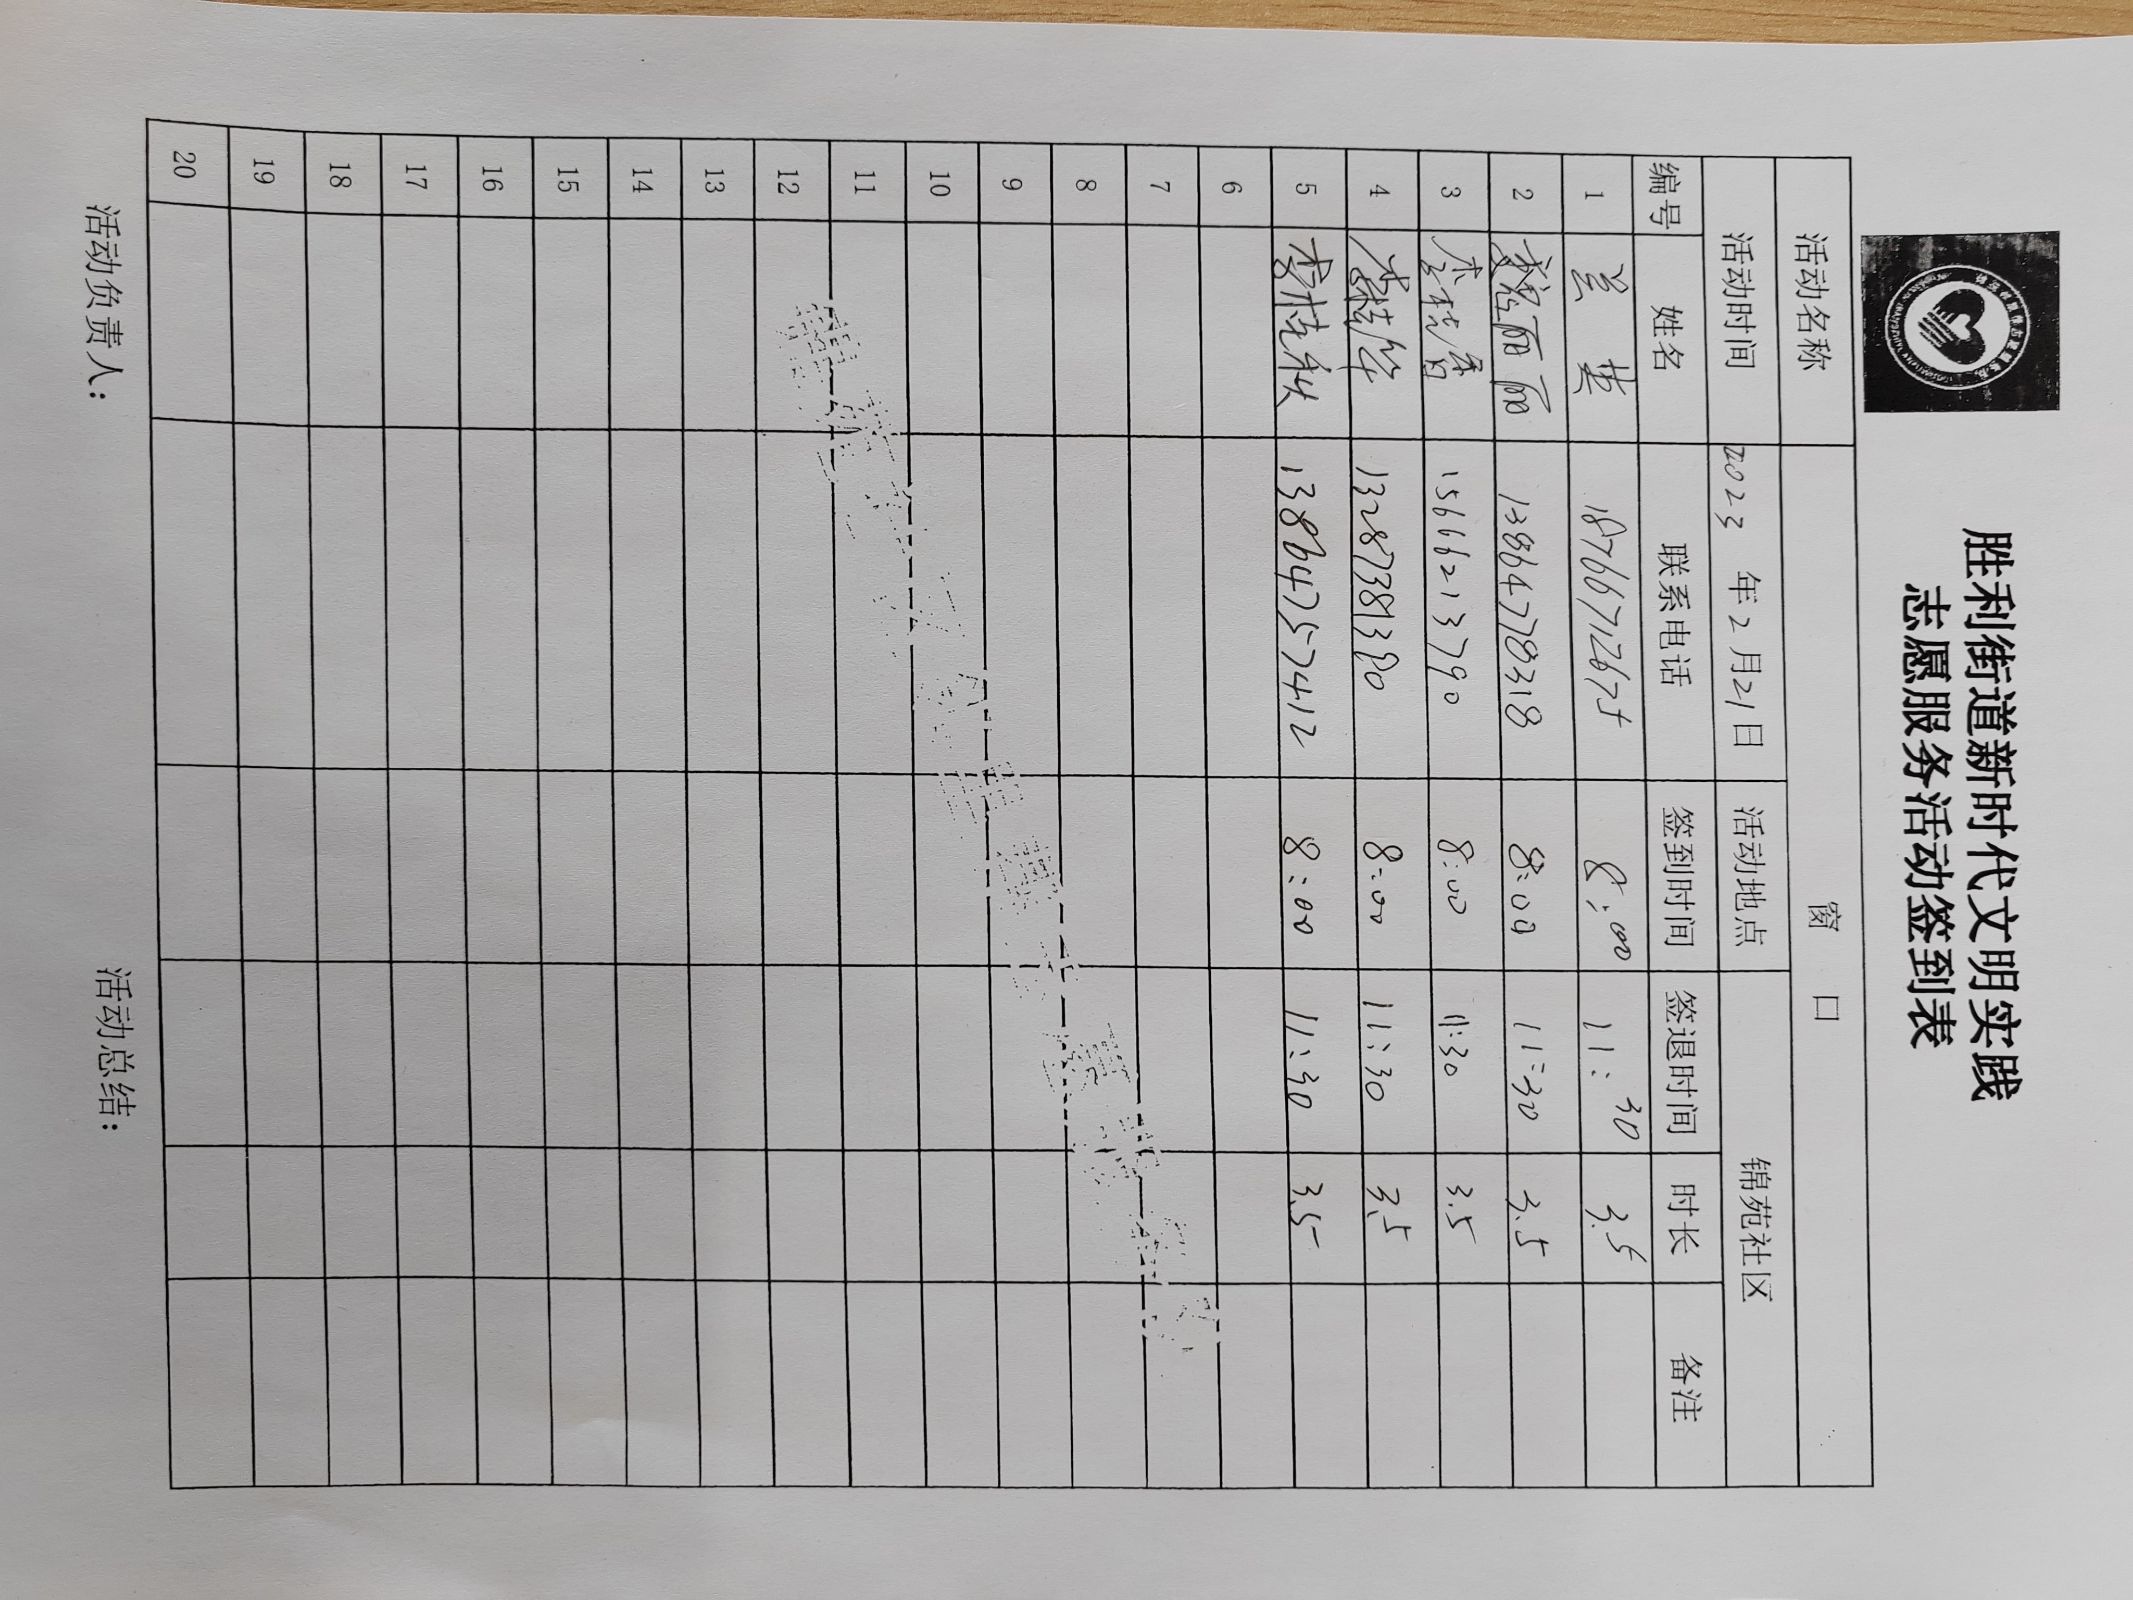 胜利街道新时代文明实践
志愿服务活动签到表
活动名称 窗 口
活动时间 2023 年 2 月 21 日 活动地点 锦苑社区
编号 姓名 联系电话 签到时间 签退时间 时长 备注
1 兰 18766712675 8:00 11:30 3.5
2 丽丽 13864778318 8:00 11:30 3.5
3 李 香 15666213790 8:00 11:30 3.5
4 13287381380 8:00 11:30 3.5
5 李桂秋 13864757412 8:00 11:30 3.5
6
7
8
9
10
11
12
13
14
15
16
17
18
19
20
活动负责人： 活动总结：